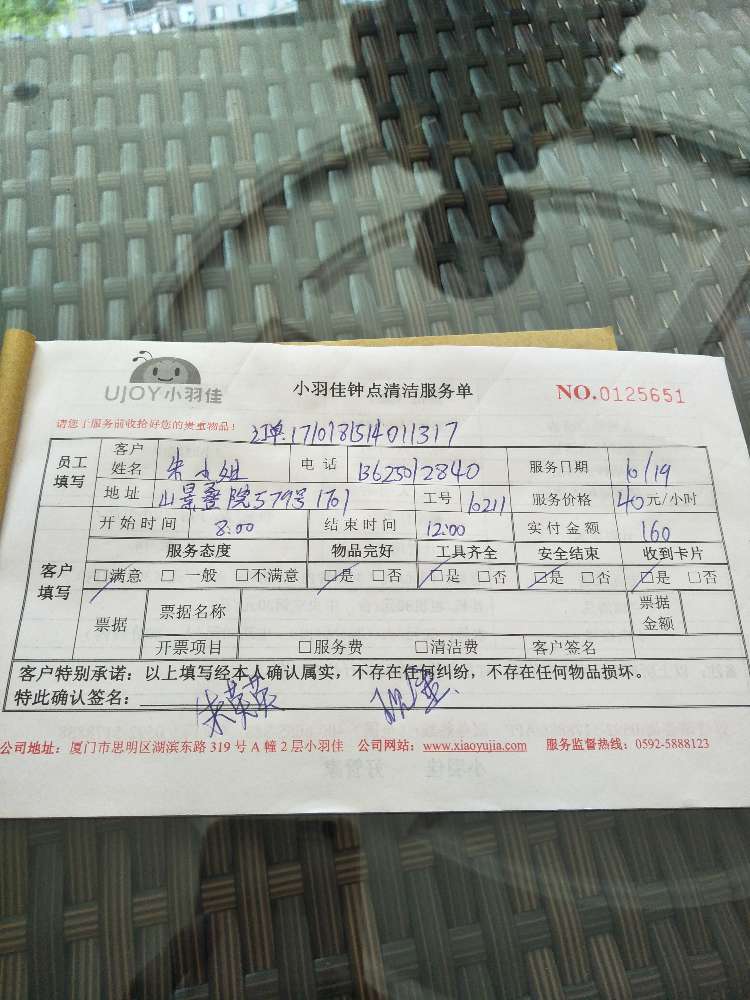 UJOY小羽佳
小羽佳钟点清洁服务单
NO.0125651
请您于服务前收拾好您的贵重物品!
订单.1710181514011317
员工填写 客户姓名 朱小姐 电话 13625012840 服务日期 10/19
地址 山景叠院579号1701 工号 10211 服务价格 40元/小时
客户填写 开始时间 8:00 结束时间 12:00 实付金额 160
服务态度 物品完好 工具齐全 安全结束 收到卡片
□满意 □一般 □不满意 □是 □否 □是 □否 □是 □否 □是 □否
票据 票据名称 票据金额
开票项目 □服务费 □清洁费 客户签名
客户特别承诺:以上填写经本人确认属实,不存在任何纠纷,不存在任何物品损坏。
特此确认签名:
公司地址:厦门市思明区湖滨东路319号A幢2层小羽佳 公司网站:www.xiaoyujia.com 服务监督热线:0592-5888123